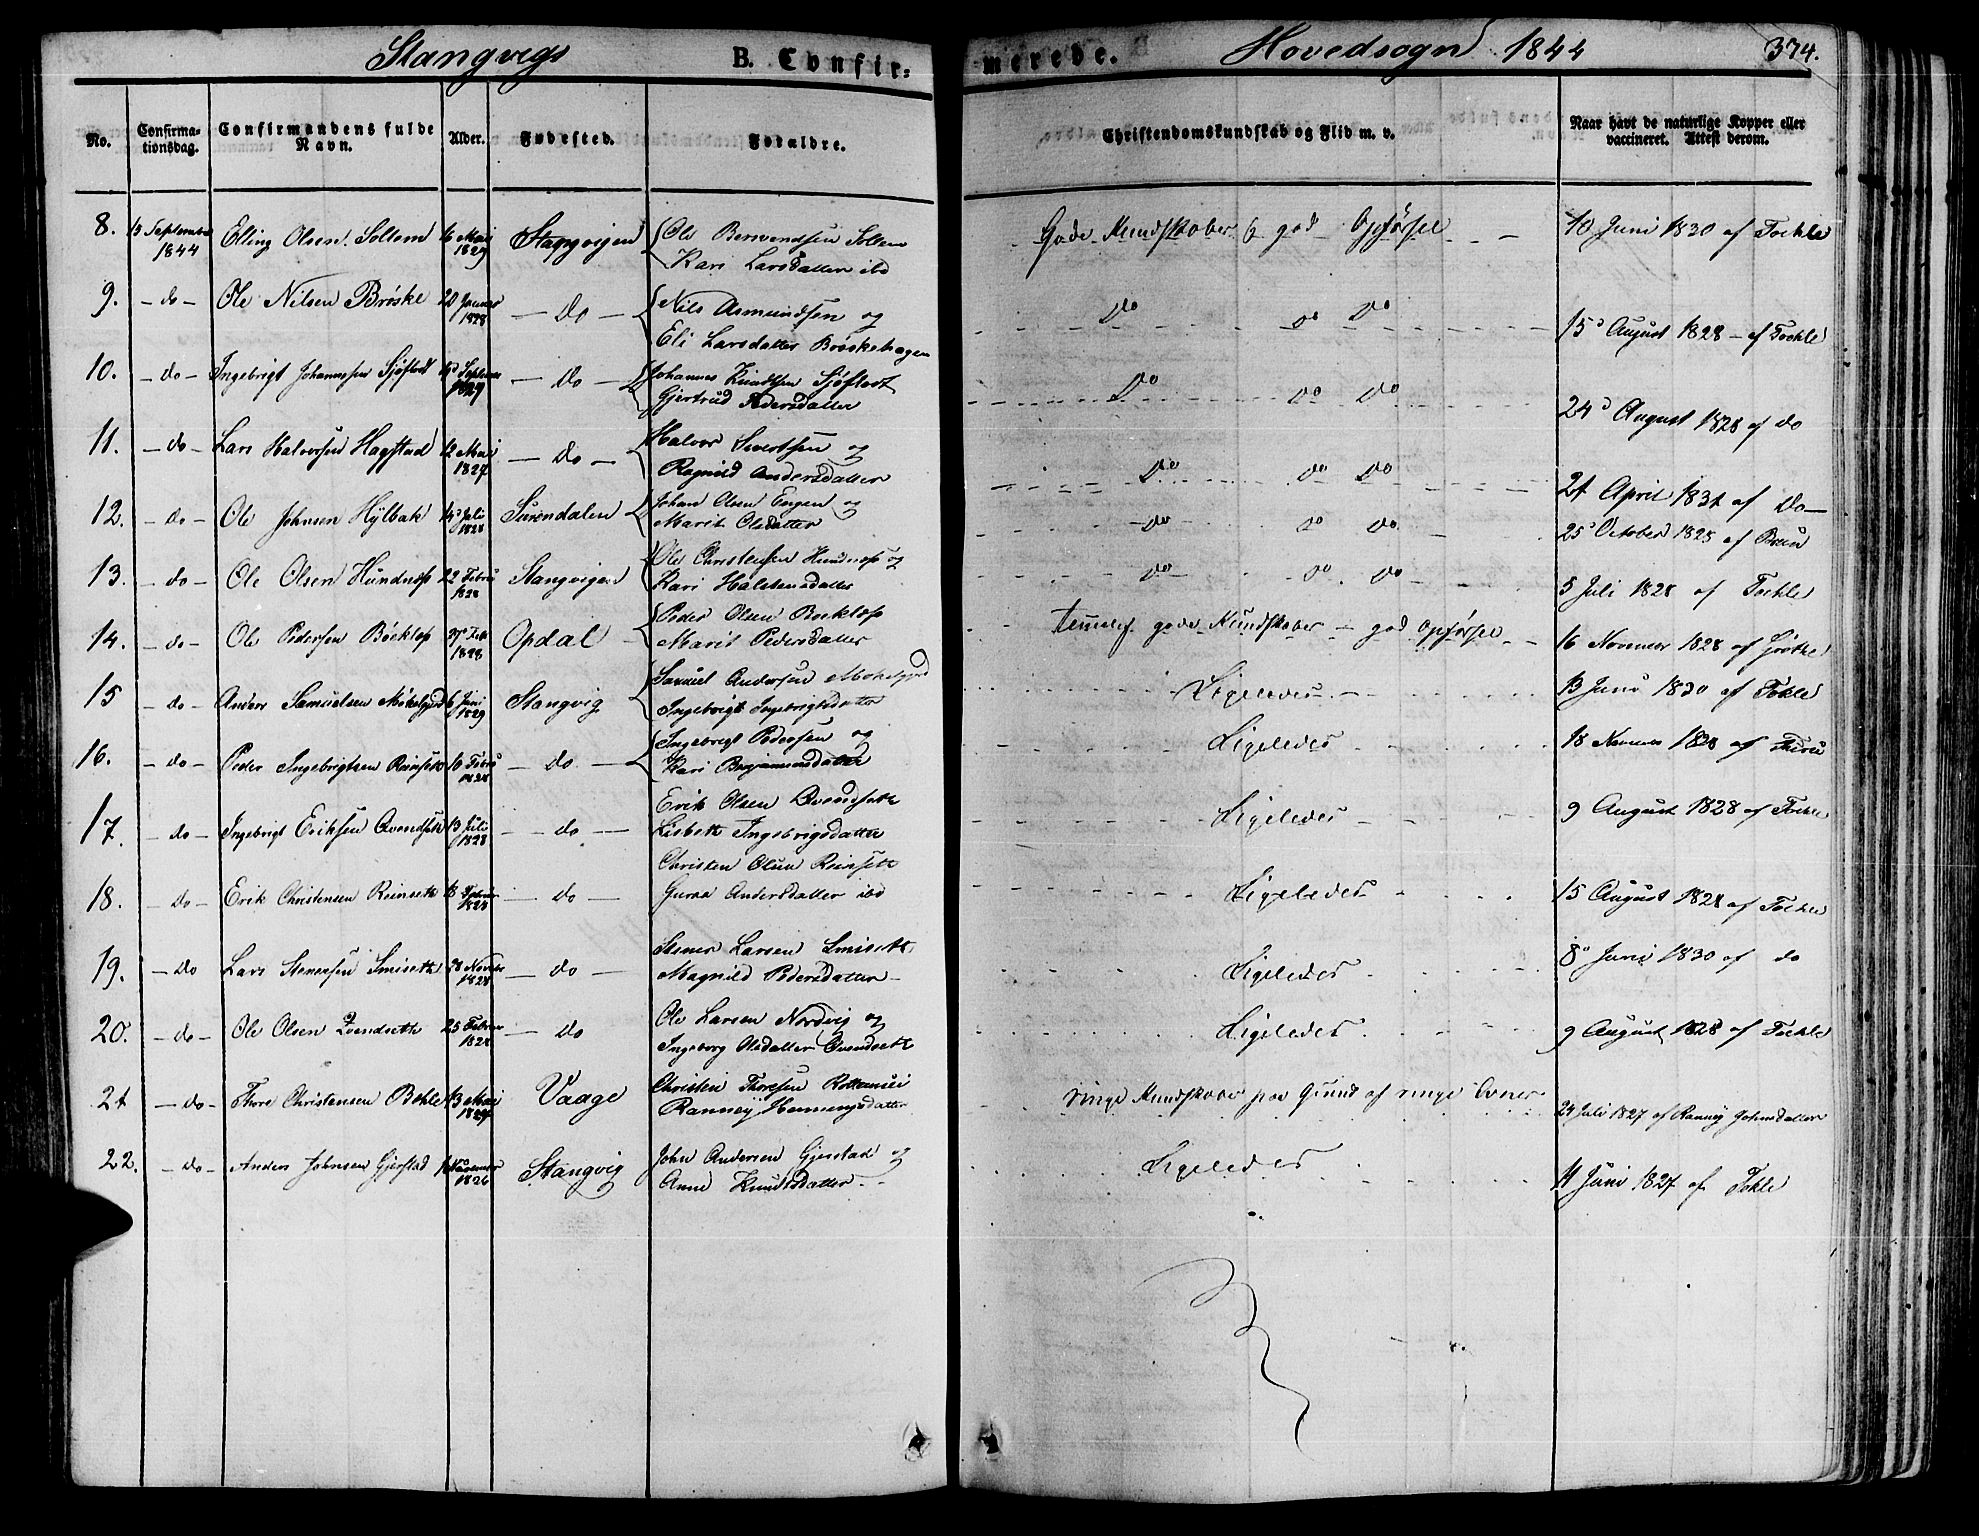 Stangvegs B. Confirmerede. Hovedsogn 1844 374.
No. Confirmationsdag. Confirmandens fulde Navn. Alder. Fødested. Forældre. Christendomskundskab og Flid m. v. Naar havt de naturlige Kopper eller vaccineret. Attest derom.
8. 15 September 1844 Elling Olsen Soltem 16 Mai 1829 Stangvigen Ole Soltem Kari Larsdatter ibd Gode Kundskaber & god Opførsel 10 Juni 1830 af Tochle
9. do Ole Nilsen Brøske 20 Januar 1828 Do Nils Asmundsen og Eli Larsdatter Brøskehagen Do Do Do 15 August 1828 af Tochle
10. do Ingebrigt Johannessen Sjøflodt Septemr 1829 Do Johannes Knudtsen Sjøflodt Gjertrud Pedersdatter Do Do Do 24 August 1828 af do
11. do Lars Halvorsen Hagstad 12 Mai 1827 Do Halvor Sivertsen og Ragnild Andersdatter Do Do Do 21 April 1831 af Do
12. do Ole Johnsen Hylbak 14 Juli 1828 Surendalen Johan Olsen Engen og Marit Olsdatter Do Do Do 25 October 1828 af Brun
13. do Ole Olsen Hundnæss 22 Febru 1828 Stangvigen Ole Christensen Hundnæss og Kari Halstensdatter Do Do Do 5 Juli 1828 af Tochle
14. do Ole Pedersen Bøeklæp 27 Feb 1828 Opdal Peder Olsen Boeklæp Marit Pedersdatter temelig gode Kundskaber god Opførsel 16 Novemer 1828 af
15 do Anders Samuelsen Mokelgjerd 6 Juni 1829 Stangvig Samuel Andersen Mokelgjerd Ingebrigt Ingebrigtsdatter Ligeledes 13 Juni 1830 af Tokle
16. do Peder Ingebrigtsen Reinseth 10 Febru 1828 do Ingebrigt Pedersen og Kari Benjaminsdatter Ligeledes 18 1828 af
17. do Ingebrigt Eriksen Qvendseth 13 Juli 1828 do Erik Olsen Qvendseth Lisbeth Ingebrigsdatter Ligeledes 9 August 1828 af Tochle
18. do Erik Christensen Reinseth 18 Februar 1828 do Christen Olsen Reinseth Guroe Andersdatter ibd Ligeledes 15 August 1828 af Tochle
19. do Lars Stenersen Smiseth 28 Novebr 1828 do Stener Larsen Smiseth Magnild Pedersdatter Ligeledes 8 Juni 1830 af do
20. do Ole Olsen Qvendseth 25 Februar 1828 do Ole Larsen Nordvig og Ingeborg Olsdatter Qvendseth Ligeledes 9 August 1828 af Tochle
21 do Thore Christensen Behle 13 Mai 1827 Vaage Christen Thoresen Ranney Hemmingsdatter ringe Kundskaber paa Grund af ringe Evner 24 Juli 1827 af Ranney Johnsdatter
22. do Anders Johnsen Gjerstad Novemer 1826 Stangvig John Andersen Gjerstad og Anne Knudsdatter Ligeledes 11 Juni 1827 af Tokle